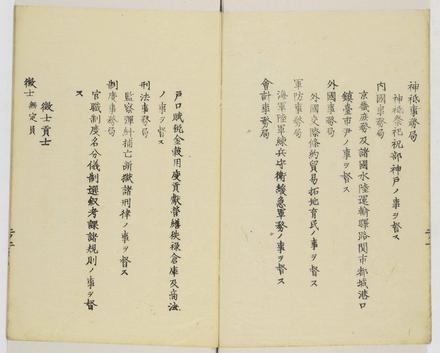 神祇事務局
神祇祭祀祝部神戸ノ事ヲ督ス
内國事務局
京畿庶務及諸國水陸運輸驛路関市都城港口
鎮臺市尹ノ事ヲ督ス
外國事務局
外國交際條約貿易拓地育民ノ事ヲ督ス
軍防事務局
海軍陸軍練兵守衛緩急軍務ノ事ヲ督ス
會計事務局
戸口賦税金穀用度貢献營繕秩禄倉庫及商法
ノ事ヲ督ス
刑法事務局
監察弾糾捕亡断獄諸刑律ノ事ヲ督ス
制度事務局
官職制度名分儀制選叙考課諸規則ノ事ヲ督
ス
徴士貢士
徴士 無定員